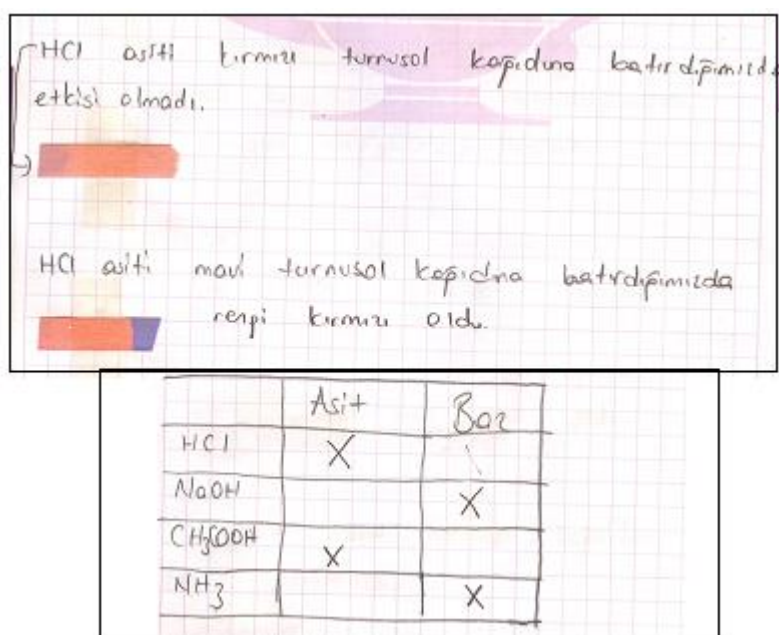 HCl asiti kırmızı turnusol kağıdına batırdığımızda
etkisi olmadı.
HCl asiti mavi turnusol kağıdına batırdığımızda
rengi kırmızı oldu.
Asit Baz
HCl X
NaOH X
CH3COOH X
NH3 X